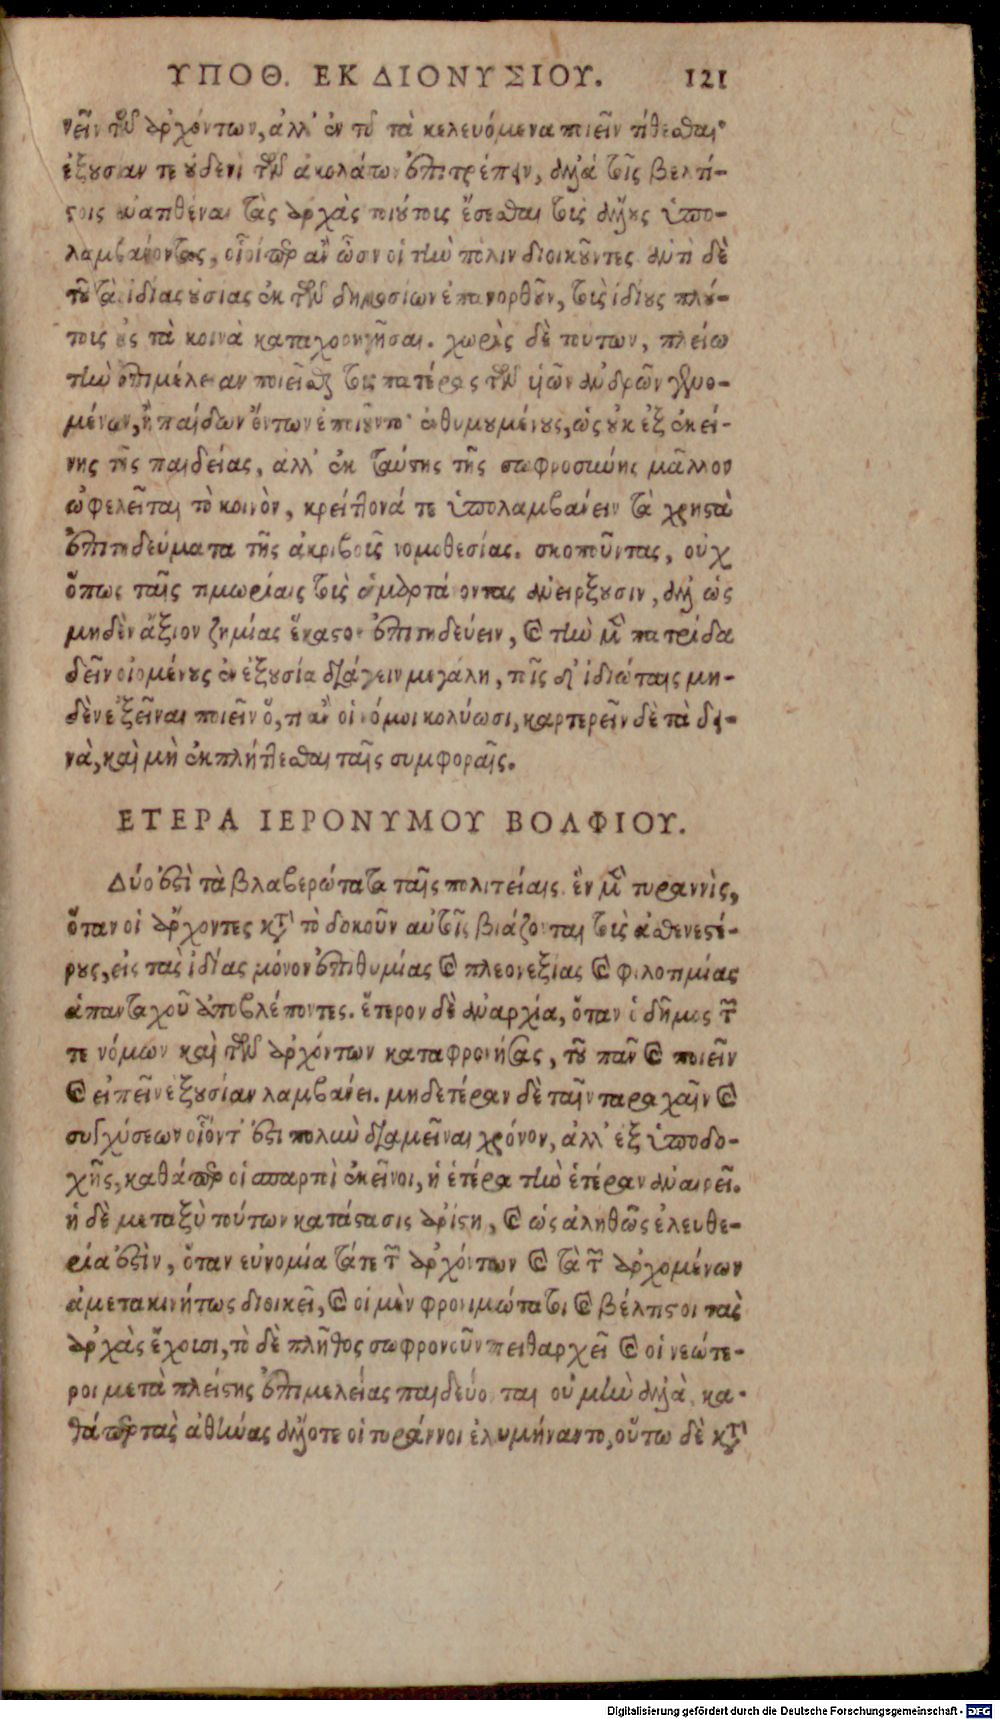 ΥΠΟΘ. ΕΚ ΔΙΟΝΥΣΙΟΥ. 121
νεῖν τῶν ἀρχόντων, ἀλλ' ἐν τῷ τὰ κελευόμενα ποιεῖν τίθεσθαι·
ἐξουσίαν τε οὐδενὶ τῶν ἀκολάστων ἐπιτρέπειν, ἀλλὰ τοῖς βελτί-
στοις ἀνατιθέναι τὰς ἀρχὰς τοιούτοις ἔσεσθαι τοὺς ἄλλους ὑπο-
λαμβάνοντας, οἷοίπερ ἂν ὦσιν οἱ τὴν πόλιν διοικοῦντες. ἀντὶ δὲ
τοῦ τὰς ἰδίας οὐσίας ἐκ τῶν δημοσίων ἐπανορθοῦν, τοὺς ἰδίους πλού-
τους εἰς τὰ κοινὰ καταχορηγῆσαι. χωρὶς δὲ τούτων, πλείω
τὴν ἐπιμέλειαν ποιεῖσθαι τοὺς πατέρας τῶν υἱῶν ἀνδρῶν γενο-
μένων, ἢ παίδων ὄντων ἐποιοῦντο· ἐνθυμουμένους, ὡς οὐκ ἐξ ἐκεί-
νης τῆς παιδείας, ἀλλ' ἐκ ταύτης τῆς σωφροσύνης μᾶλλον
ὠφελεῖται τὸ κοινὸν, κρείττονά τε ὑπολαμβάνειν τὰ χρηστὰ
ἐπιτηδεύματα τῆς ἀκριβοῦς νομοθεσίας. σκοποῦντας, οὐχ
ὅπως ταῖς τιμωρίαις τοὺς ἁμαρτάνοντας ἀνείρξουσιν, ἀλλ' ὡς
μηδὲν ἄξιον ζημίας ἕκαστον ἐπιτηδεύειν, καὶ τὴν μὲν πατρίδα
δεῖν οἰομένους ἐν ἐξουσίᾳ διάγειν μεγάλῃ, τοῖς δ' ἰδιώταις μη-
δὲν ἐξεῖναι ποιεῖν ὅ,τι ἂν οἱ νόμοι κολύωσι, καρτερεῖν δὲ τὰ δει-
νὰ, καὶ μὴ ἐκπλήττεσθαι ταῖς συμφοραῖς.
ΕΤΕΡΑ ΙΕΡΟΝΥΜΟΥ ΒΟΛΦΙΟΥ.
Δύο ἐστὶ τὰ βλαβερώτατα ταῖς πολιτείαις. ἓν μὲν τυραννὶς,
ὅταν οἱ ἄρχοντες κατὰ τὸ δοκοῦν αὐτοῖς βιάζονται τοὺς ἀσθενεστέ-
ρους, εἰς τὰς ἰδίας μόνον ἐπιθυμίας καὶ πλεονεξίας καὶ φιλοτιμίας
ἁπανταχοῦ ἀποβλέποντες. ἕτερον δὲ ἀναρχία, ὅταν ὁ δῆμος τῶν
τε νόμων καὶ τῶν ἀρχόντων καταφρονήσας, τοῦ πᾶν καὶ ποιεῖν
καὶ εἰπεῖν ἐξουσίαν λαμβάνει. μηδετέραν δὲ ταῖν ταραχαῖν καὶ
συγχύσεων οἷόντ' ἐστι πολὺν διαμεῖναι χρόνον, ἀλλ' ἐξ ὑποδο-
χῆς, καθάπερ οἱ σπαρτοὶ ἐκεῖνοι, ἡ ἑτέρα τὴν ἑτέραν ἀναιρεῖ.
ἡ δὲ μεταξὺ τούτων κατάστασις ἀρίστη, καὶ ὡς ἀληθῶς ἐλευθε-
ρία ἐστὶν, ὅταν εὐνομία τά τε τῶν ἀρχόντων καὶ τὰ τῶν ἀρχομένων
ἀμετακινήτως διοικεῖ, καὶ οἱ μὲν φρονιμώτατοι καὶ βέλτιστοι τὰς
ἀρχὰς ἔχουσι, τὸ δὲ πλῆθος σωφρονοῦν πειθαρχεῖ καὶ οἱ νεώτε-
ροι μετὰ πλείστης ἐπιμελείας παιδεύονται. οὐ μὴν ἀλλὰ, κα-
θάπερ τὰς ἀθήνας ἄλλοτε οἱ τύραννοι ἐλυμήναντο, οὕτω δὲ κατὰ
Digitalisierung gefördert durch die Deutsche Forschungsgemeinschaft - DFG